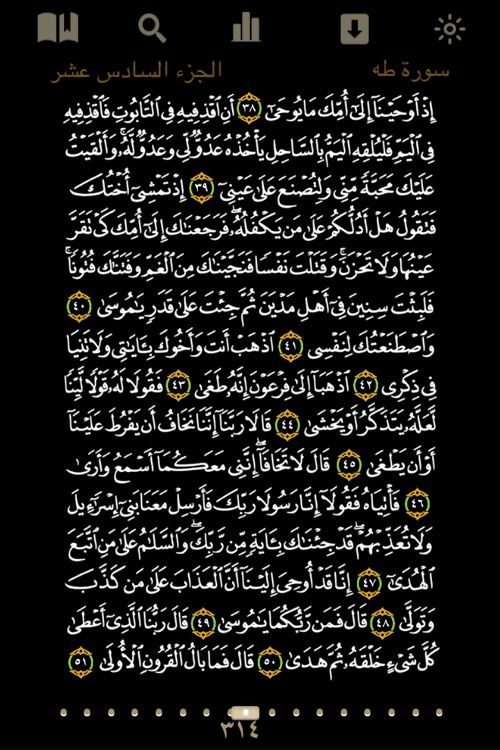 سورة طه الجزء السادس عشر
إِذْ أَوْحَيْنَآ إِلَىٰٓ أُمِّكَ مَا يُوحَىٰٓ ٣٨ أَنِ ٱقْذِفِيهِ فِى ٱلتَّابُوتِ فَٱقْذِفِيهِ
فِى ٱلْيَمِّ فَلْيُلْقِهِ ٱلْيَمُّ بِٱلسَّاحِلِ يَأْخُذْهُ عَدُوٌّ لِّى وَعَدُوٌّ لَّهُۥ ۚ وَأَلْقَيْتُ
عَلَيْكَ مَحَبَّةً مِّنِّى وَلِتُصْنَعَ عَلَىٰ عَيْنِىٓ ٣٩ إِذْ تَمْشِىٓ أُخْتُكَ
فَتَقُولُ هَلْ أَدُلُّكُمْ عَلَىٰ مَن يَكْفُلُهُۥ ۖ فَرَجَعْنَٰكَ إِلَىٰٓ أُمِّكَ كَىْ تَقَرَّ
عَيْنُهَا وَلَا تَحْزَنَ ۚ وَقَتَلْتَ نَفْسًا فَنَجَّيْنَٰكَ مِنَ ٱلْغَمِّ وَفَتَنَّٰكَ فُتُونًا ۚ
فَلَبِثْتَ سِنِينَ فِىٓ أَهْلِ مَدْيَنَ ثُمَّ جِئْتَ عَلَىٰ قَدَرٍ يَٰمُوسَىٰ ٤٠
وَٱصْطَنَعْتُكَ لِنَفْسِى ٤١ ٱذْهَبْ أَنتَ وَأَخُوكَ بِـَٔايَٰتِى وَلَا تَنِيَا
فِى ذِكْرِى ٤٢ ٱذْهَبَآ إِلَىٰ فِرْعَوْنَ إِنَّهُۥ طَغَىٰ ٤٣ فَقُولَا لَهُۥ قَوْلًا لَّيِّنًا
لَّعَلَّهُۥ يَتَذَكَّرُ أَوْ يَخْشَىٰ ٤٤ قَالَا رَبَّنَآ إِنَّنَا نَخَافُ أَن يَفْرُطَ عَلَيْنَآ
أَوْ أَن يَطْغَىٰ ٤٥ قَالَ لَا تَخَافَآ ۖ إِنَّنِى مَعَكُمَآ أَسْمَعُ وَأَرَىٰ
٤٦ فَأْتِيَاهُ فَقُولَآ إِنَّا رَسُولَا رَبِّكَ فَأَرْسِلْ مَعَنَا بَنِىٓ إِسْرَٰٓءِيلَ
وَلَا تُعَذِّبْهُمْ ۖ قَدْ جِئْنَٰكَ بِـَٔايَةٍ مِّن رَّبِّكَ ۖ وَٱلسَّلَٰمُ عَلَىٰ مَنِ ٱتَّبَعَ
ٱلْهُدَىٰٓ ٤٧ إِنَّا قَدْ أُوحِىَ إِلَيْنَآ أَنَّ ٱلْعَذَابَ عَلَىٰ مَن كَذَّبَ
وَتَوَلَّىٰ ٤٨ قَالَ فَمَن رَّبُّكُمَا يَٰمُوسَىٰ ٤٩ قَالَ رَبُّنَا ٱلَّذِىٓ أَعْطَىٰ
كُلَّ شَىْءٍ خَلْقَهُۥ ثُمَّ هَدَىٰ ٥٠ قَالَ فَمَا بَالُ ٱلْقُرُونِ ٱلْأُولَىٰ ٥١
٣١٤